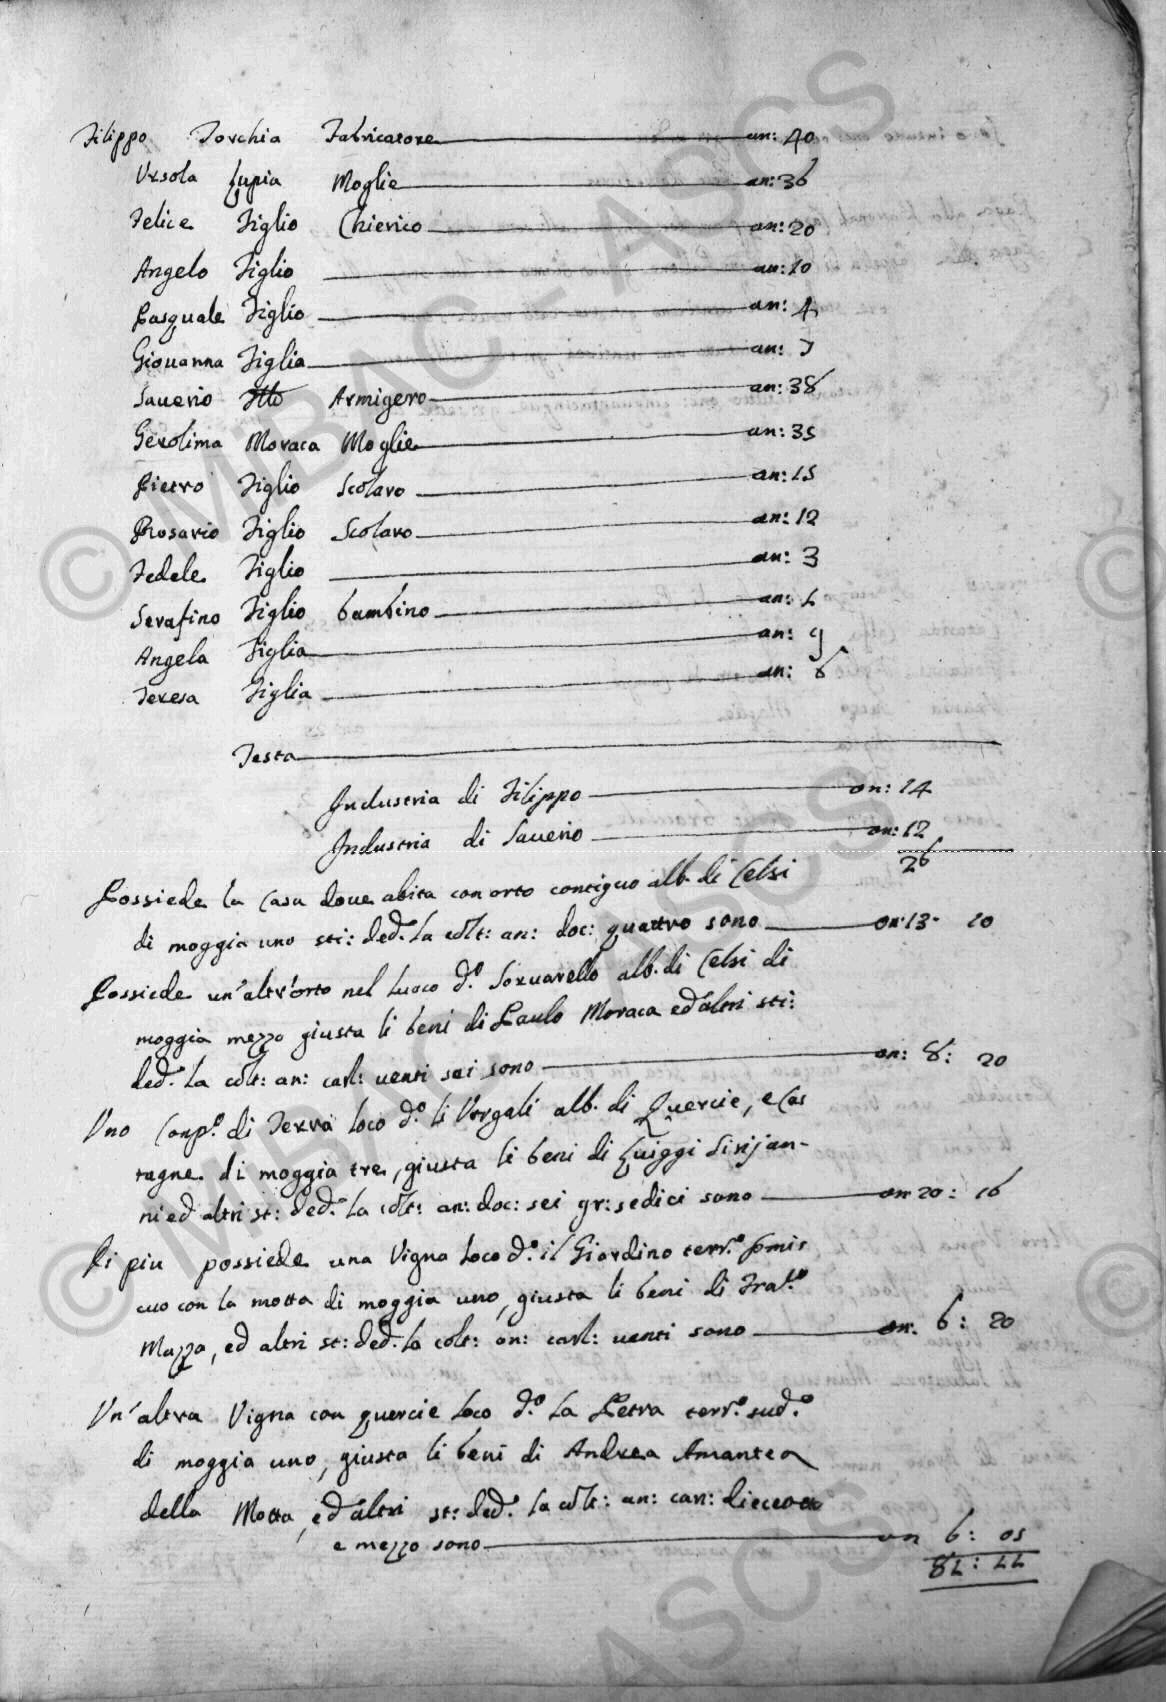 Filippo Torchia Fabricatore an: 40
Ursola Lupia Moglie an: 36
Felice Figlio Chierico an: 20
Angelo Figlio an: 10
Pasquale Figlio an: 4
Giovanna Figlia an: 7
Saverio Armigero an: 38
Gerolima Moraca Moglie an: 35
Pietro Figlio Scolaro an: 15
Rosario Figlio Scolaro an: 12
Fedele Figlio an: 3
Serafino Figlio bambino an: 1
Angela Figlia an: 9
Teresa Figlia an: 6
Testa
Industria di Filippo on: 14
Industria di Saverio on: 12
26
Possiede la Casa dove abita con orto contiguo alb. di Celsi
di moggia uno sti: ded.a la colt: an: doc: quattro sono on: 13 - 10
Possiede un'altr'orto nel luoco d.o alb. di Celsi di
moggia mezzo giusta li beni di Paulo Moraca ed altri sti:
ded.a la colt: an: carl: venti sei sono on: 8: 20
Uno Camp.o di Terra loco d.o li Vergali alb. di Quercie, e Cas
tagne di moggia tre, giusta li beni di Luiggi Sirijan-
ni ed altri st: ded.a la colt: an: doc: sei gr: sedici sono on 20: 16
Di piu possiede una Vigna loco d.o il Giardino terr.o pmis
cuo con la motta di moggia uno, giusta li beni di Fra
Mazza, ed altri st: ded.a la colt: an: carl: venti sono on: 6: 20
Un'altra Vigna con quercie loco d.o la Petra terr.o sud.o
di moggia uno, giusta li beni di Andrea Amantea
della Motta, ed altri st: ded.a la colt: an: car: dieceotto
e mezzo sono on 6: 05
81: 11
© MIBAC - ASCS
© MIBAC - ASCS
ASCS
©
©